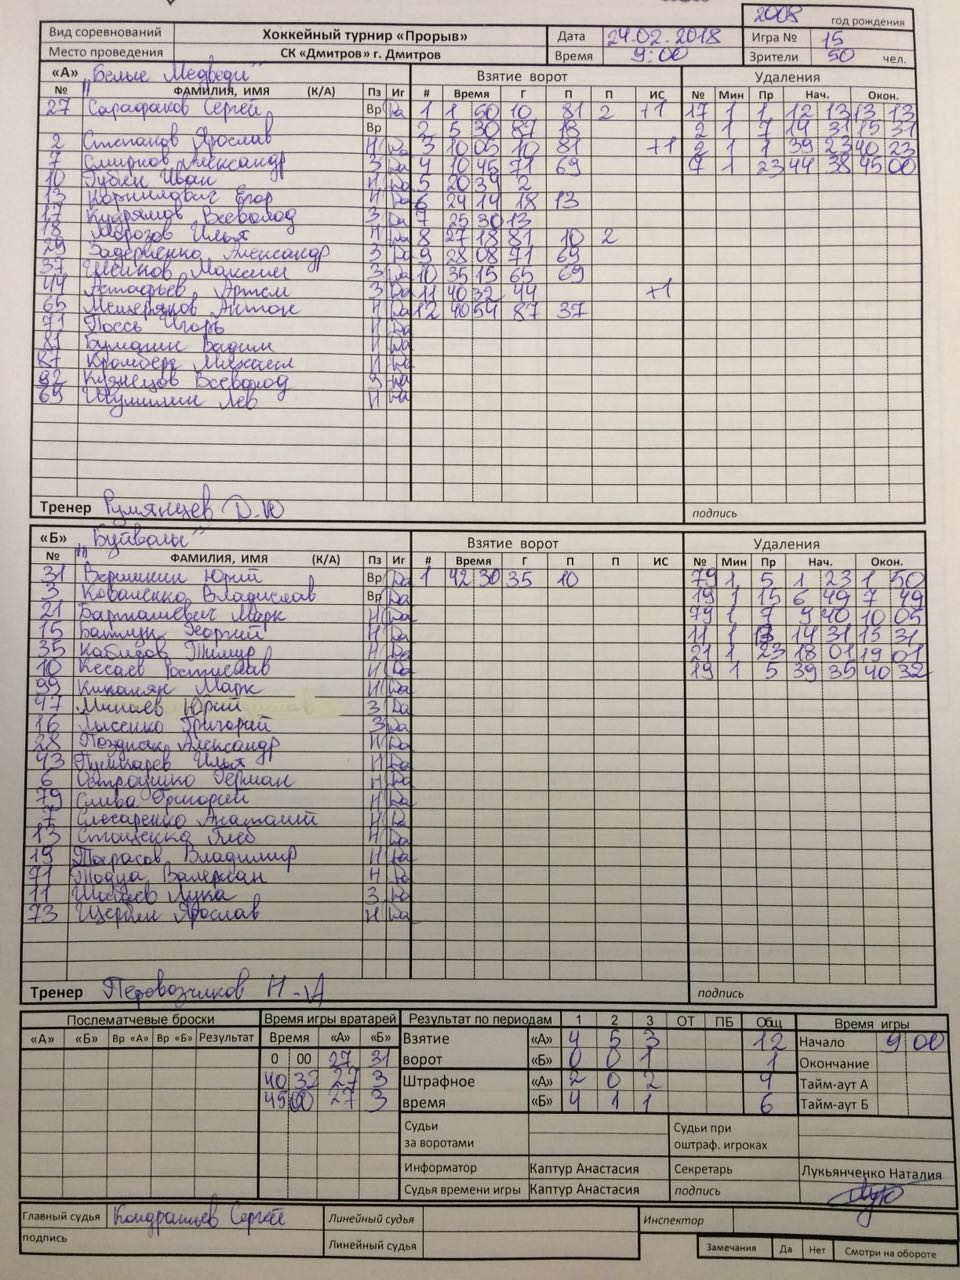 2008 год рождения
Вид соревнований Хоккейный турнир «Прорыв» Дата 24.02.2018 Игра № 15
Место проведения СК «Дмитров» г. Дмитров Время 9:00 Зрители 50 чел.
«А» "Белые Медведи" Взятие ворот Удаления
№ ФАМИЛИЯ, ИМЯ (К/А) Пз Иг # Время Г П П ИС № Мин Пр Нач. Окон.
27 Сарафанов Сергей Вр Да 1 1 50 10 81 2 +1 17 1 1 12 13 13 13
Вр 2 5 30 87 18 2 1 7 14 31 15 31
2 Степанов Ярослав Н Да 3 10 05 10 81 +1 2 1 1 39 23 40 23
7 Смирнов Александр З Да 4 10 45 71 69 7 1 23 44 38 45 00
10 Губин Иван Н Да 5 20 34 2
13 Корнилович Егор Н Да 6 24 14 18 13
17 Кудрямов Всеволод З Да 7 25 30 13
18 Морозов Илья Н Да 8 27 18 81 10 2
29 Задериенко Александр З Да 9 28 08 71 69
37 Максим З Да 10 35 15 65 69
44 Астафьев Артем З Да 11 40 32 44 +1
65 Мещеряков Антон Н Да 12 40 54 87 37
71 Поссь Игорь Н Да
81 Вадим Н Да
87 Кромберг Михаил Н Да
92 Кузнецов Всеволод З Да
69 Шумилин Лев Н Да
Тренер Румянцев Д.Ю подпись
«Б» "Буйволы" Взятие ворот Удаления
№ ФАМИЛИЯ, ИМЯ (К/А) Пз Иг # Время Г П П ИС № Мин Пр Нач. Окон.
31 Вершинин Юрий Вр Да 1 42 30 35 10 79 1 5 1 23 1 50
3 Коваленко Владислав Вр Да 19 1 15 6 49 7 49
21 Барташевич Марк Н Да 79 1 7 9 40 10 05
15 Георгий Н Да 11 1 13 14 31 15 31
35 Кабидов Тимур Н Да 21 1 23 18 01 19 01
10 Кесаев Ростислав Н Да 19 1 5 39 35 40 32
99 Киракян Марк Н Да
47 Минаев Юрий З Да
16 Лысенко Григорий З Да
28 Поздняк Александр Н Да
43 Пушкарев Илья Н Да
6 Остроушко Герман Н Да
79 Слива Григорий Н Да
7 Слесаренко Анатолий Н Да
13 Стоценко Глеб Н Да
19 Тарасов Владимир Н Да
71 Тодуа Валериан Н Да
11 Шибаев Лука З Да
73 Щербин Ярослав Н Да
Тренер Перевозчиков Н.А подпись
Послематчевые броски Время игры вратарей Результат по периодам 1 2 3 ОТ ПБ Общ Время игры
«А» «Б» Вр «А» Вр «Б» Результат Время «А» «Б» Взятие ворот «А» 4 5 3 12 Начало 9 00
0 00 27 31 «Б» 0 0 1 1 Окончание
40 32 27 3 Штрафное время «А» 2 0 2 4 Тайм-аут А
45 00 27 3 «Б» 4 1 1 6 Тайм-аут Б
Судьи за воротами Судьи при оштраф. игроках
Информатор Каптур Анастасия Секретарь Лукьянченко Наталия
Судья времени игры Каптур Анастасия подпись
Главный судья Кондрашев Сергей Линейный судья Инспектор
подпись Линейный судья Замечания Да Нет Смотри на обороте